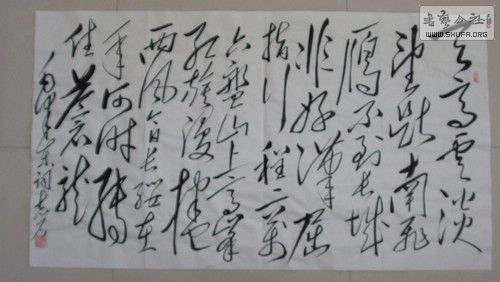 书艺公社
WWW.SHUFA.ORG
天高云淡
望断南飞
雁不到长城
非好汉屈
指行程二万
六盘山上高峰
红旗漫卷
西风今日长缨在
手何时缚
住苍龙
毛泽东词